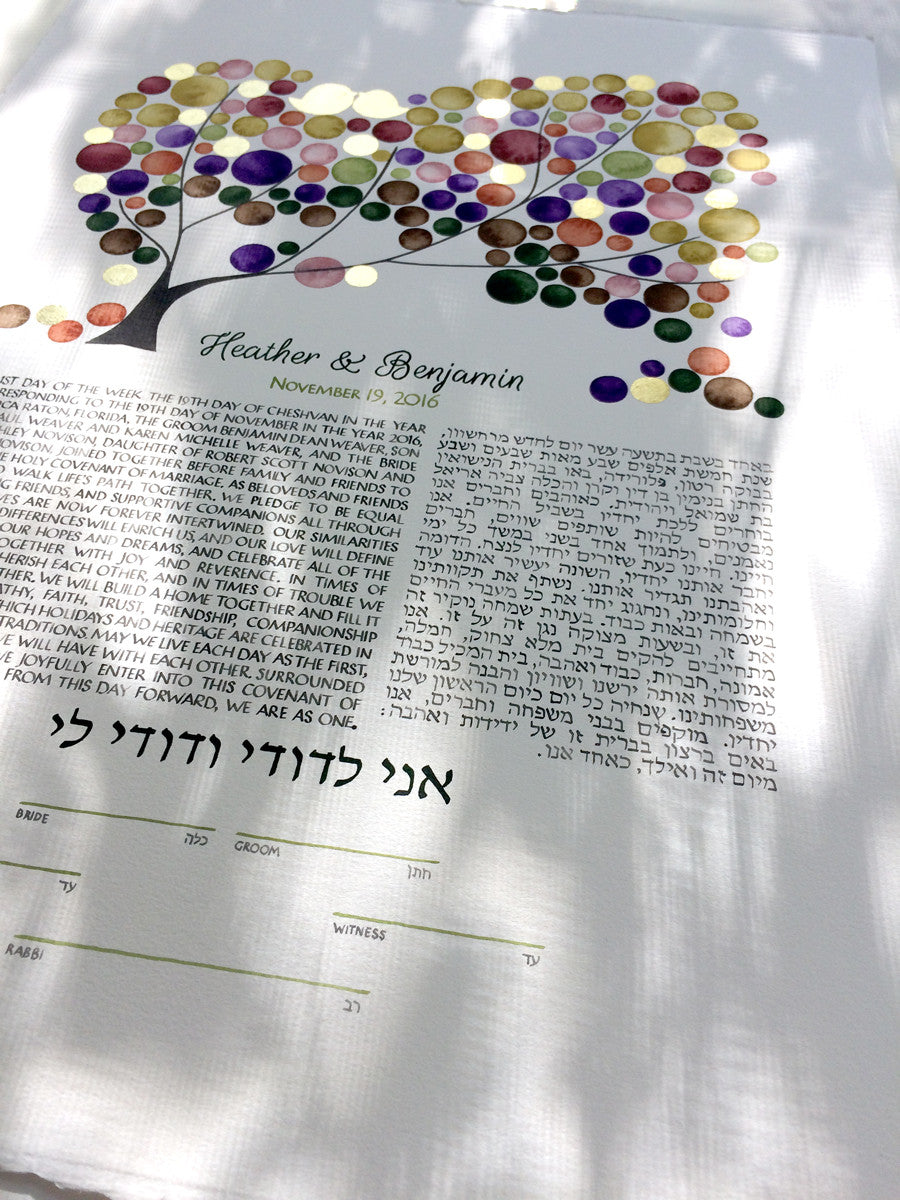 Heather & Benjamin
NOVEMBER 19, 2016
DAY OF THE WEEK, THE 19TH DAY OF CHESHVAN IN THE YEAR
TO THE 19TH DAY OF NOVEMBER IN THE YEAR 2016,
RATON, FLORIDA, THE GROOM BENJAMIN DEAN WEAVER, SON
WEAVER AND KAREN MICHELLE WEAVER, AND THE BRIDE
NOVISON, DAUGHTER OF ROBERT SCOTT NOVISON AND
JOINED TOGETHER BEFORE FAMILY AND FRIENDS TO
HOLY COVENANT OF MARRIAGE. AS BELOVEDS AND FRIENDS
WALK LIFE'S PATH TOGETHER. WE PLEDGE TO BE EQUAL
FRIENDS, AND SUPPORTIVE COMPANIONS ALL THROUGH
ARE NOW FOREVER INTERTWINED. OUR SIMILARITIES
DIFFERENCES WILL ENRICH US, AND OUR LOVE WILL DEFINE
OUR HOPES AND DREAMS, AND CELEBRATE ALL OF THE
WITH JOY AND REVERENCE. IN TIMES OF
EACH OTHER, AND IN TIMES OF TROUBLE WE
WE WILL BUILD A HOME TOGETHER AND FILL IT
FAITH, TRUST, FRIENDSHIP, COMPANIONSHIP
HOLIDAYS AND HERITAGE ARE CELEBRATED IN
TRADITIONS. MAY WE LIVE EACH DAY AS THE FIRST,
WE WILL HAVE WITH EACH OTHER. SURROUNDED
JOYFULLY ENTER INTO THIS COVENANT OF
FROM THIS DAY FORWARD, WE ARE AS ONE.
באחד בשבת בתשעה עשר יום לחדש מרחשוון,
שנת חמשת אלפים שבע מאות שבעים ושבע
בבוקה רטון, פלורידה, באו בברית הנישואין
החתן בנימין בן דין וקרן והכלה צביה אריאל
בת שמואל ויהודית. כאוהבים וחברים אנו
בוחרים ללכת יחדיו בשביל החיים. אנו
מבטיחים להיות שותפים שווים, חברים
נאמנים, ולתמוך אחד בשני במשך כל ימי
חיינו. חיינו כעת שזורים יחדיו לנצח. הדומה
יחבר אותנו יחדיו, השונה יעשיר אותנו עוד
ואהבתנו תגדיר אותנו. נשתף את תקוותינו
וחלומותינו, ונחגוג יחד את כל מעברי החיים
בשמחה ובאות כבוד. בעתות שמחה נוקיר זה
את זו, ובשעות מצוקה נגן זה על זו. אנו
מתחייבים להקים בית מלא צחוק, חמלה,
אמונה, חברות, כבוד ואהבה, בית המכיל כבוד
למסורת אותה ירשנו ושוויון והבנה למורשת
משפחותינו. שנחיה כל יום כיום הראשון שלנו
יחדיו. מוקפים בבני משפחה וחברים, אנו
באים ברצון בברית זו של ידידות ואהבה:
מיום זה ואילך, כאחד אנו.
אני לדודי ודודי לי
BRIDE כלה
GROOM חתן
עד
WITNESS עד
RABBI רב